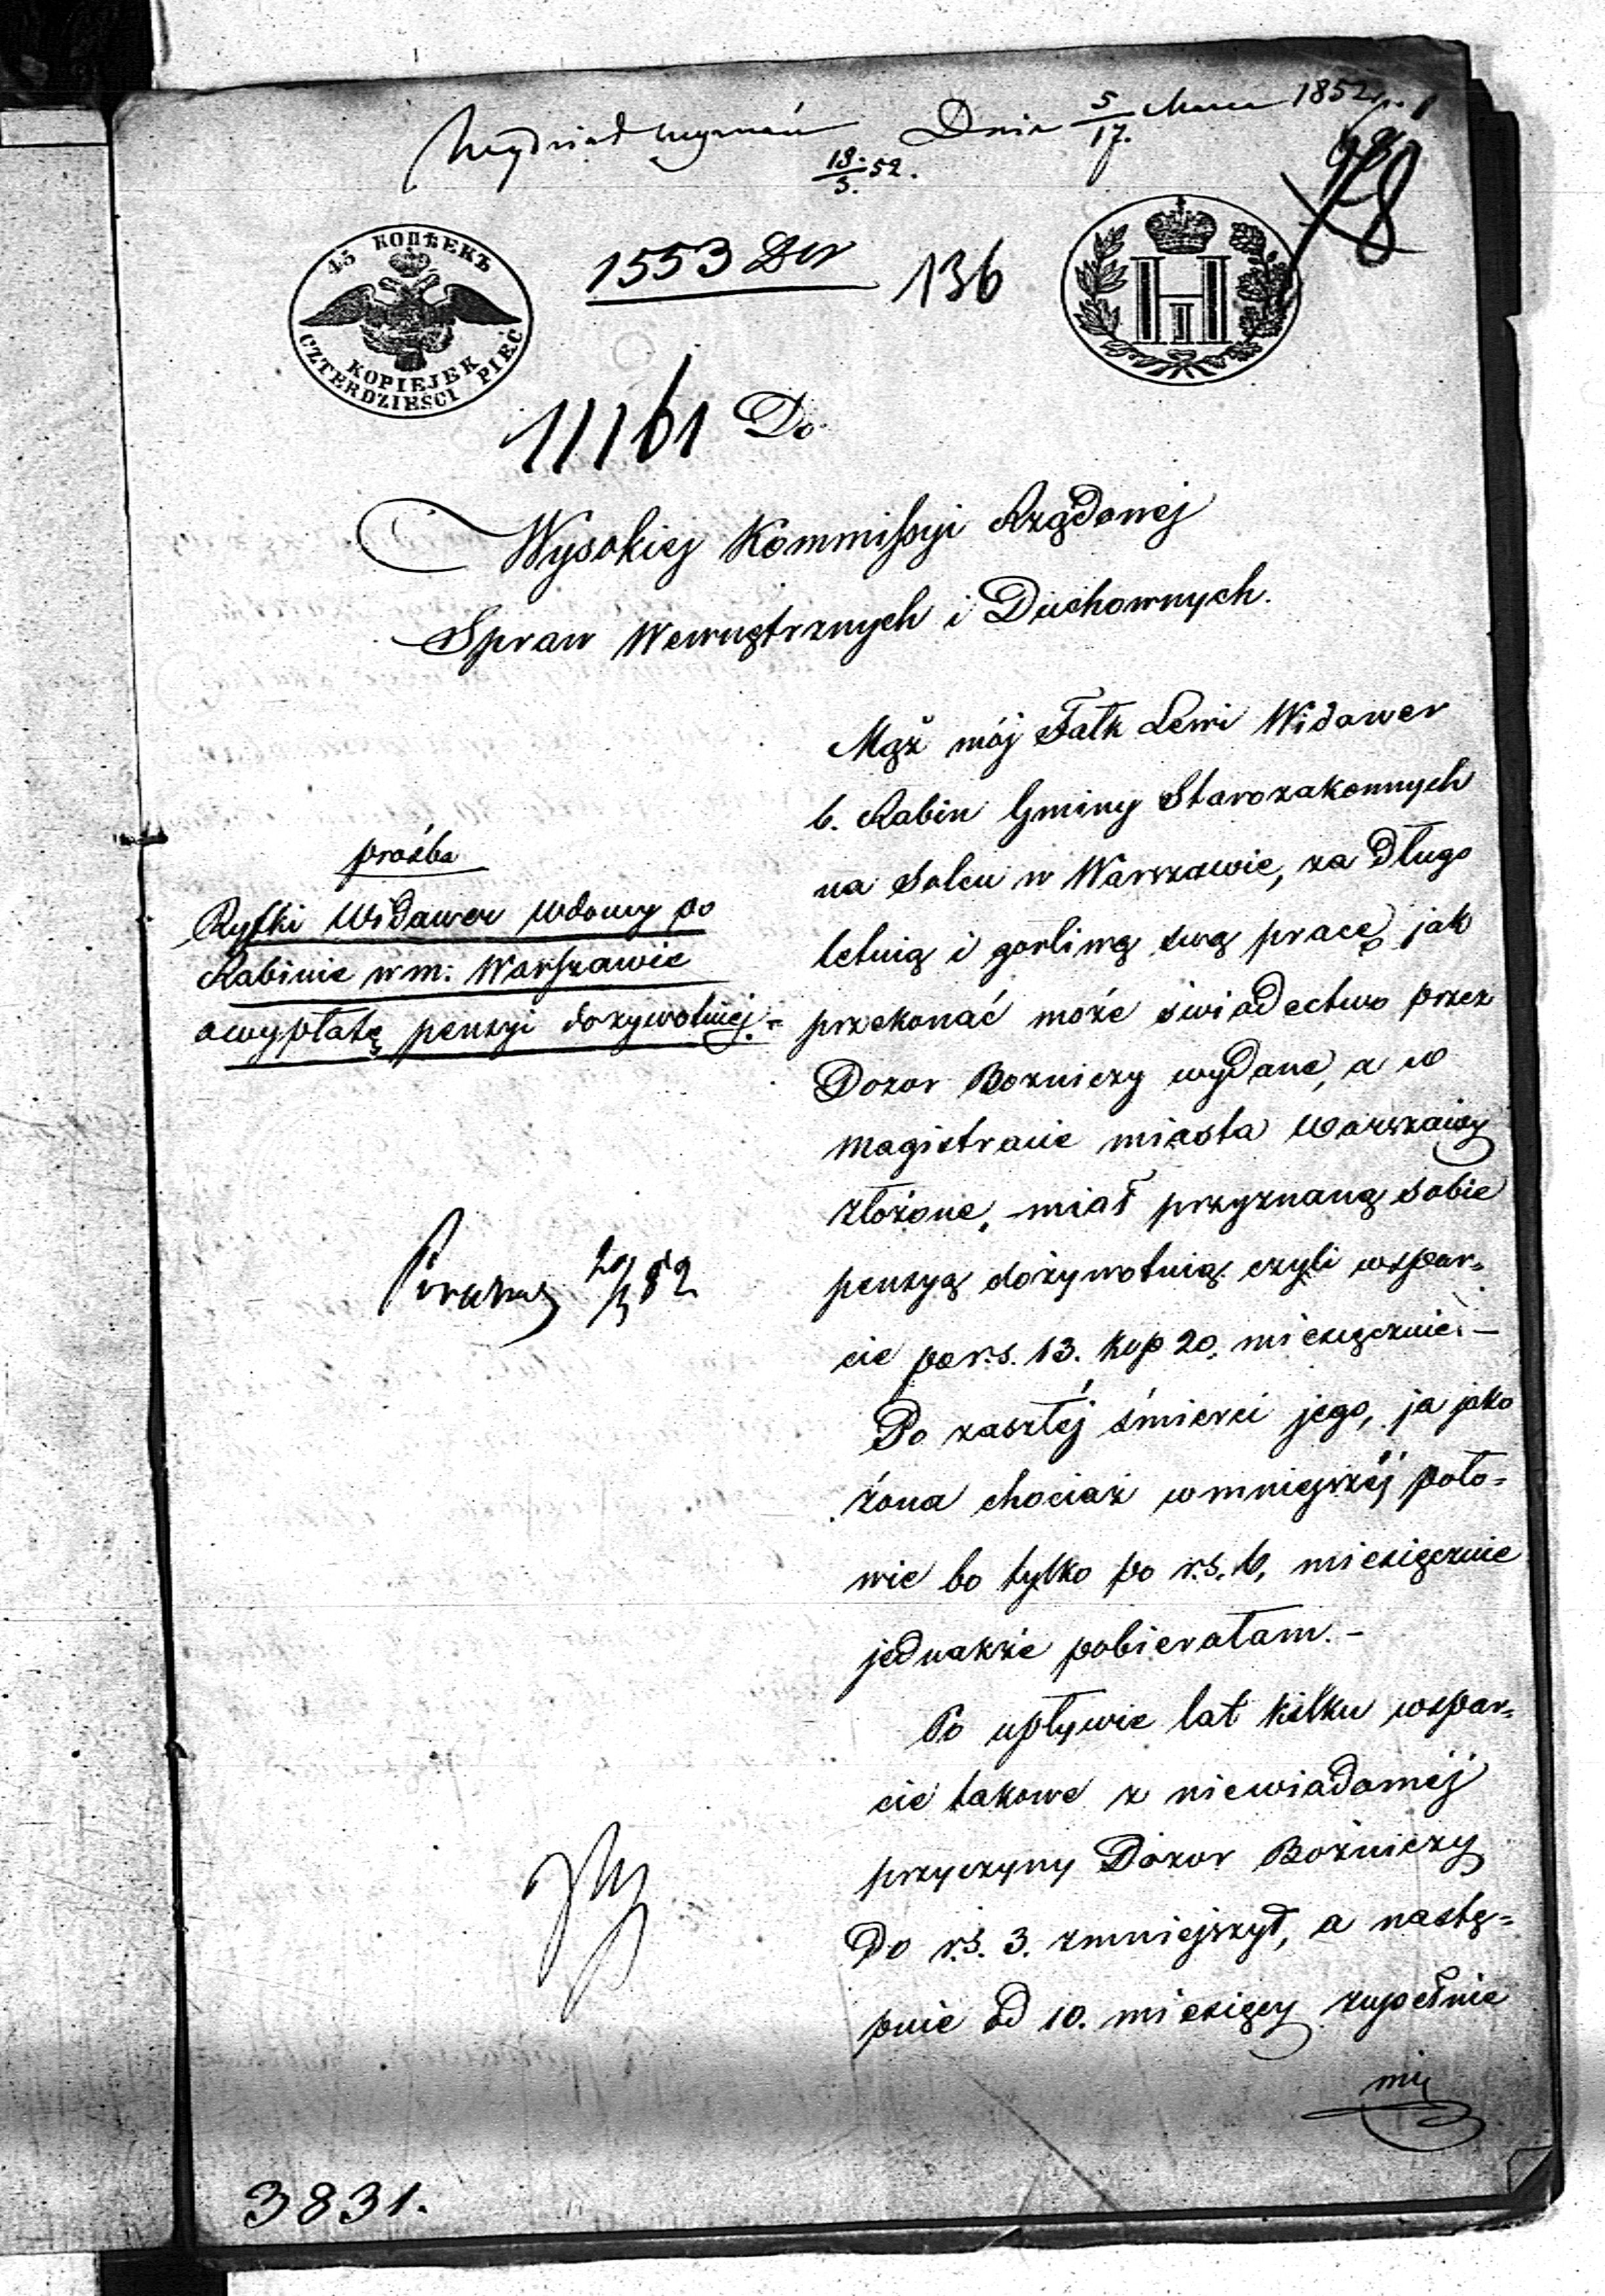 Wydział wyznań Dnia 5/17. Marca 1852 r.
18./3. 52.
1553 Der
136
78
45 КОПѢЕКЪ
KOPIEJEK
CZTERDZIEŚCI PIĘĆ
H I
11161
Do
Wysokiej Kommissyi Rządowej
Spraw Wewnętrznych i Duchownych.
prośba
Ryfki Widawer wdowy po
Rabinie w m: Warszawie
o wypłatę pensyi dożywotniej.-
20/3 852
Mąż mój Falk Lewi Widawer
b. Rabin Gminy Starozakonnych
na Solcu w Warszawie, za długo
letnią i gorliwą swą pracę, jak
przekonać może świadectwo przez
Dozor Bozniczy wydane, a w
magistracie miasta Warszawy
złożone, miał przyznaną sobie
pensyą dożywotnią czyli wspar=
cie po r.s. 13. kop 20. miesięcznie.—
Po zaszłéj śmierci jego, ja jako
żona chociaż w mniejszéj poło=
wie bo tylko po r.s. 6, miesięcznie
jednakże pobierałam.-
Po upływie lat kilku wspar=
cie takowe z niewiadoméj
przyczyny Dozor Bożniczy
do r.s. 3. zmniejszył, a nastę=
pnie od 10. miesięcy zupełnie
mi
3831.